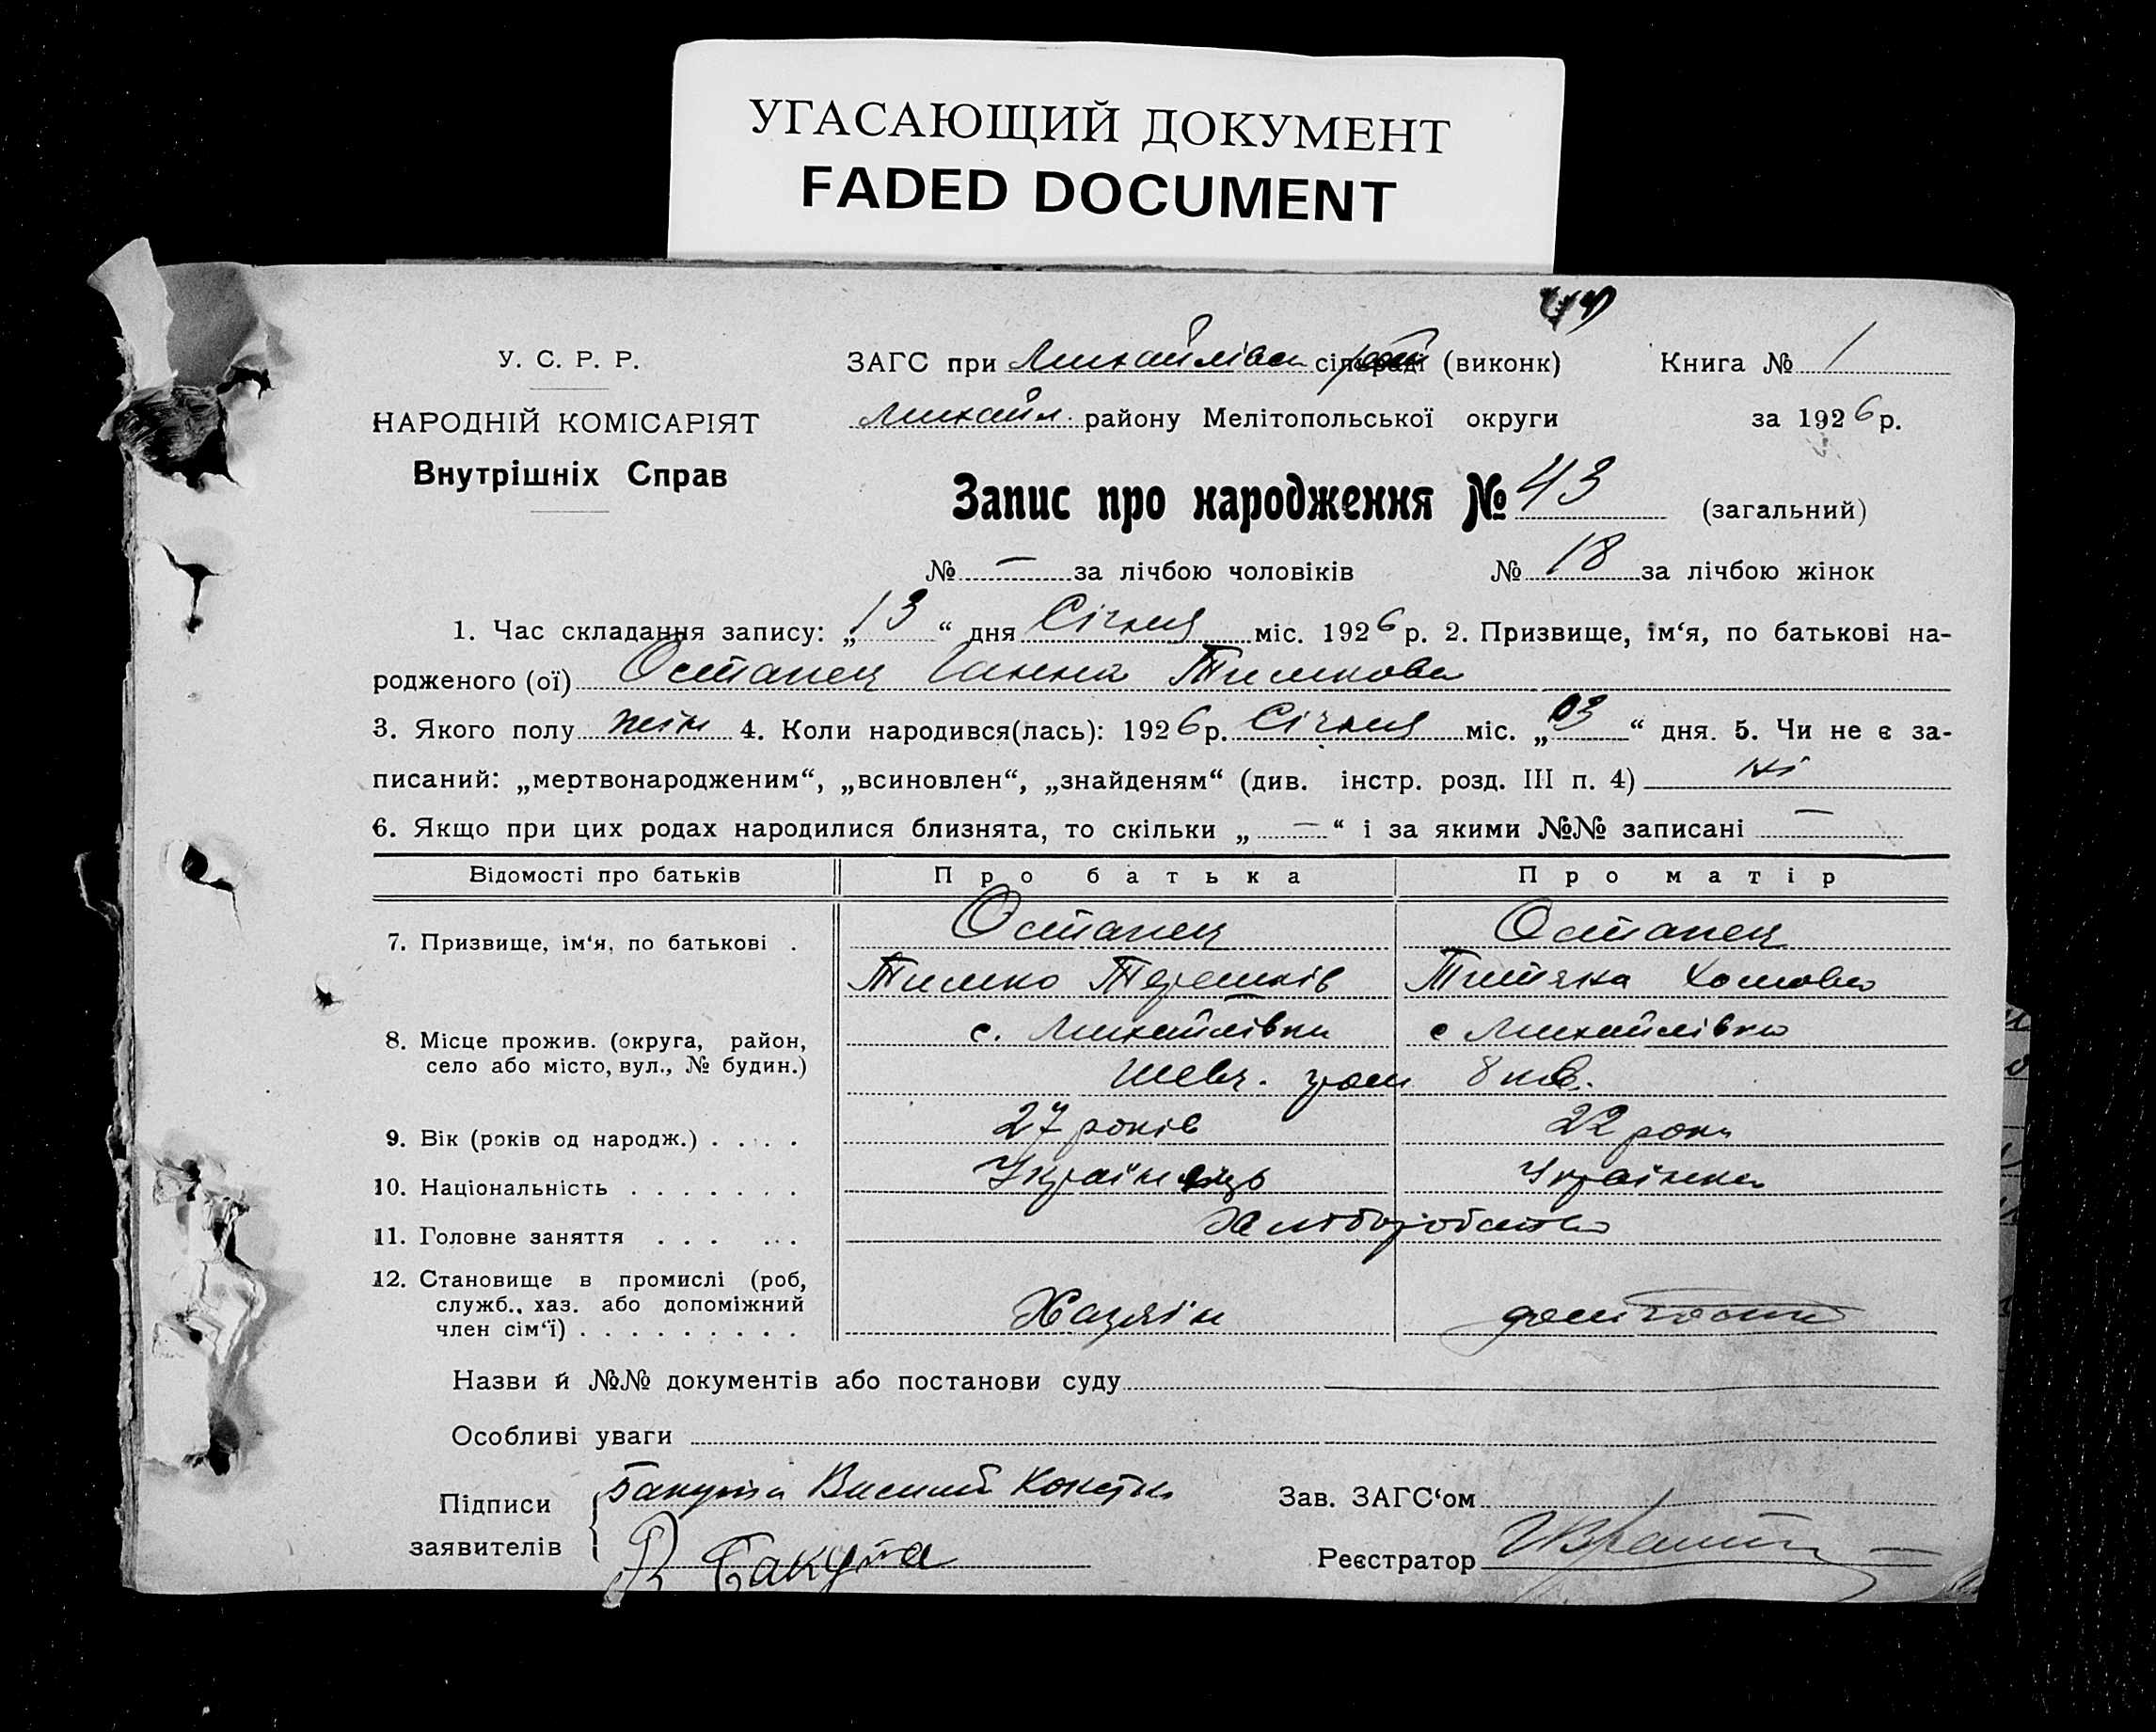 УГАСАЮЩИЙ ДОКУМЕНТ
FADED DOCUMENT
У. С. Р. Р.
НАРОДНІЙ КОМІСАРІЯТ
Внутрішніх Справ
ЗАГС при Михайлівск сільраді (виконк) Книга № 1
Михайл. району Мелітопольської округи за 1926 р.
Запис про народження № 43 (загальний)
№ — за лічбою чоловіків № 18 за лічбою жінок
1. Час складання запису: „13“ дня Січня міс. 1926 р. 2. Призвище, ім‘я, по батькові на-
родженого (ої) Останец Ганна Тимкова
3. Якого полу жін 4. Коли народився(лась): 1926 р. Січня міс. „03“ дня. 5. Чи не є за-
писаний: „мертвонародженим“, „всиновлен“, „знайденям“ (див. інстр. розд. III п. 4) ні
6. Якщо при цих родах народилися близнята, то скільки „—“ і за якими №№ записані —
Відомості про батьків Про батька Про матір
7. Призвище, ім‘я, по батькові . Останец Останец
Тимко Терешків Титяна Хомова
8. Місце прожив. (округа, район, село або місто, вул., № будин.) с. Михайлівка с Михайлівка
Шевч. гром 8 кв.
9. Вік (років од народж.) . . . . 27 років 22 роки
10. Національність . . . . . . . Українець Українка
11. Головне заняття . . . . . . Хліборобство
12. Становище в промислі (роб, служб., хаз. або допоміжний член сім‘ї) . . . . . . . . . Хазяїн
Назви й №№ документів або постанови суду
Особливі уваги
Підписи заявителів Бакута Василь Констн
В Бакута
Зав. ЗАГС‘ом
Реєстратор